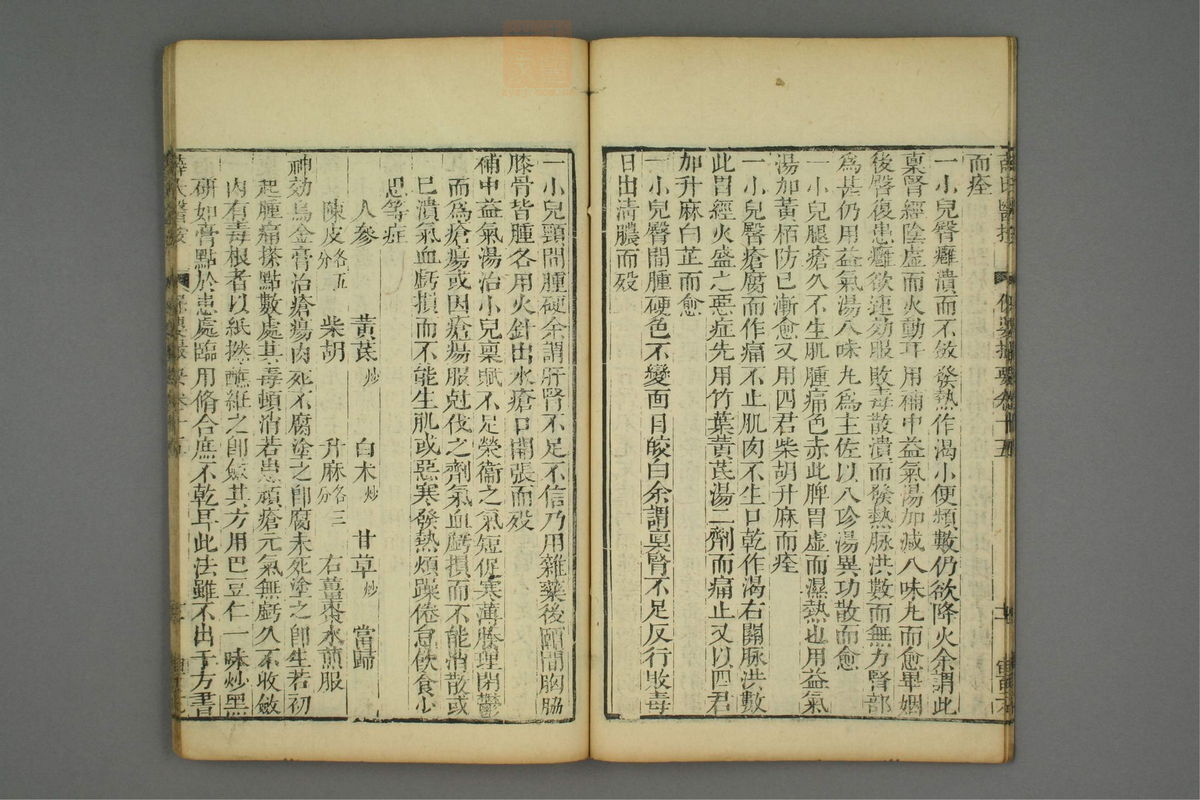 而痊
一小兒臀癰潰而不斂發熱作渴小便頻數仍欲降火余謂此
稟腎經陰虛而火動耳用補中益氣湯加減八味丸而愈畢姻
後臀復患癰欲速効服敗毒散潰而發熱脉洪數而無力腎部
為甚仍用益氣湯八味丸爲主佐以八珍湯異功散而愈
一小兒腿瘡久不生肌腫痛色赤此脾胃虛而濕熱也用益氣
湯加黃栢防已漸愈又用四君柴胡升麻而痊
一小兒臀瘡腐而作痛不止肌肉不生口乾作渴右關脉洪數
此胃經火盛之惡症先用竹葉黃芪湯二劑而痛止又以四君
加升麻白芷而愈
一小兒臀間腫硬色不變面目皎白余謂稟腎不足反行敗毒
日出清膿而殁
一小兒頸間腫硬余謂肝腎不足不信乃用雜藥後頤間胸脇
膝骨皆腫各用火針出水瘡口開張而殁
補中益氣湯治小兒稟賦不足榮衞之氣短促寒薄腠理閉鬱
而爲瘡瘍或因瘡瘍服尅伐之劑氣血虧損而不能消散或
巳潰氣血虧損而不能生肌或惡寒發熱煩躁倦怠飲食少
思等症
人參 黃芪炒 白木炒 甘草炒 當歸
陳皮各五分 柴胡 升麻各三分 右薑棗水煎服
神効烏金膏治瘡瘍肉死不腐塗之卽腐未死塗之卽生若初
起腫痛搽點數處其毒頓消若患頑瘡元氣無虧久不收斂
內有毒根者以紙撚蘸紝之卽斂其方用巴豆仁一味炒黑
研如膏點於患處臨用脩合庶不乾耳此法雖不出于方書
保嬰撮要卷十五